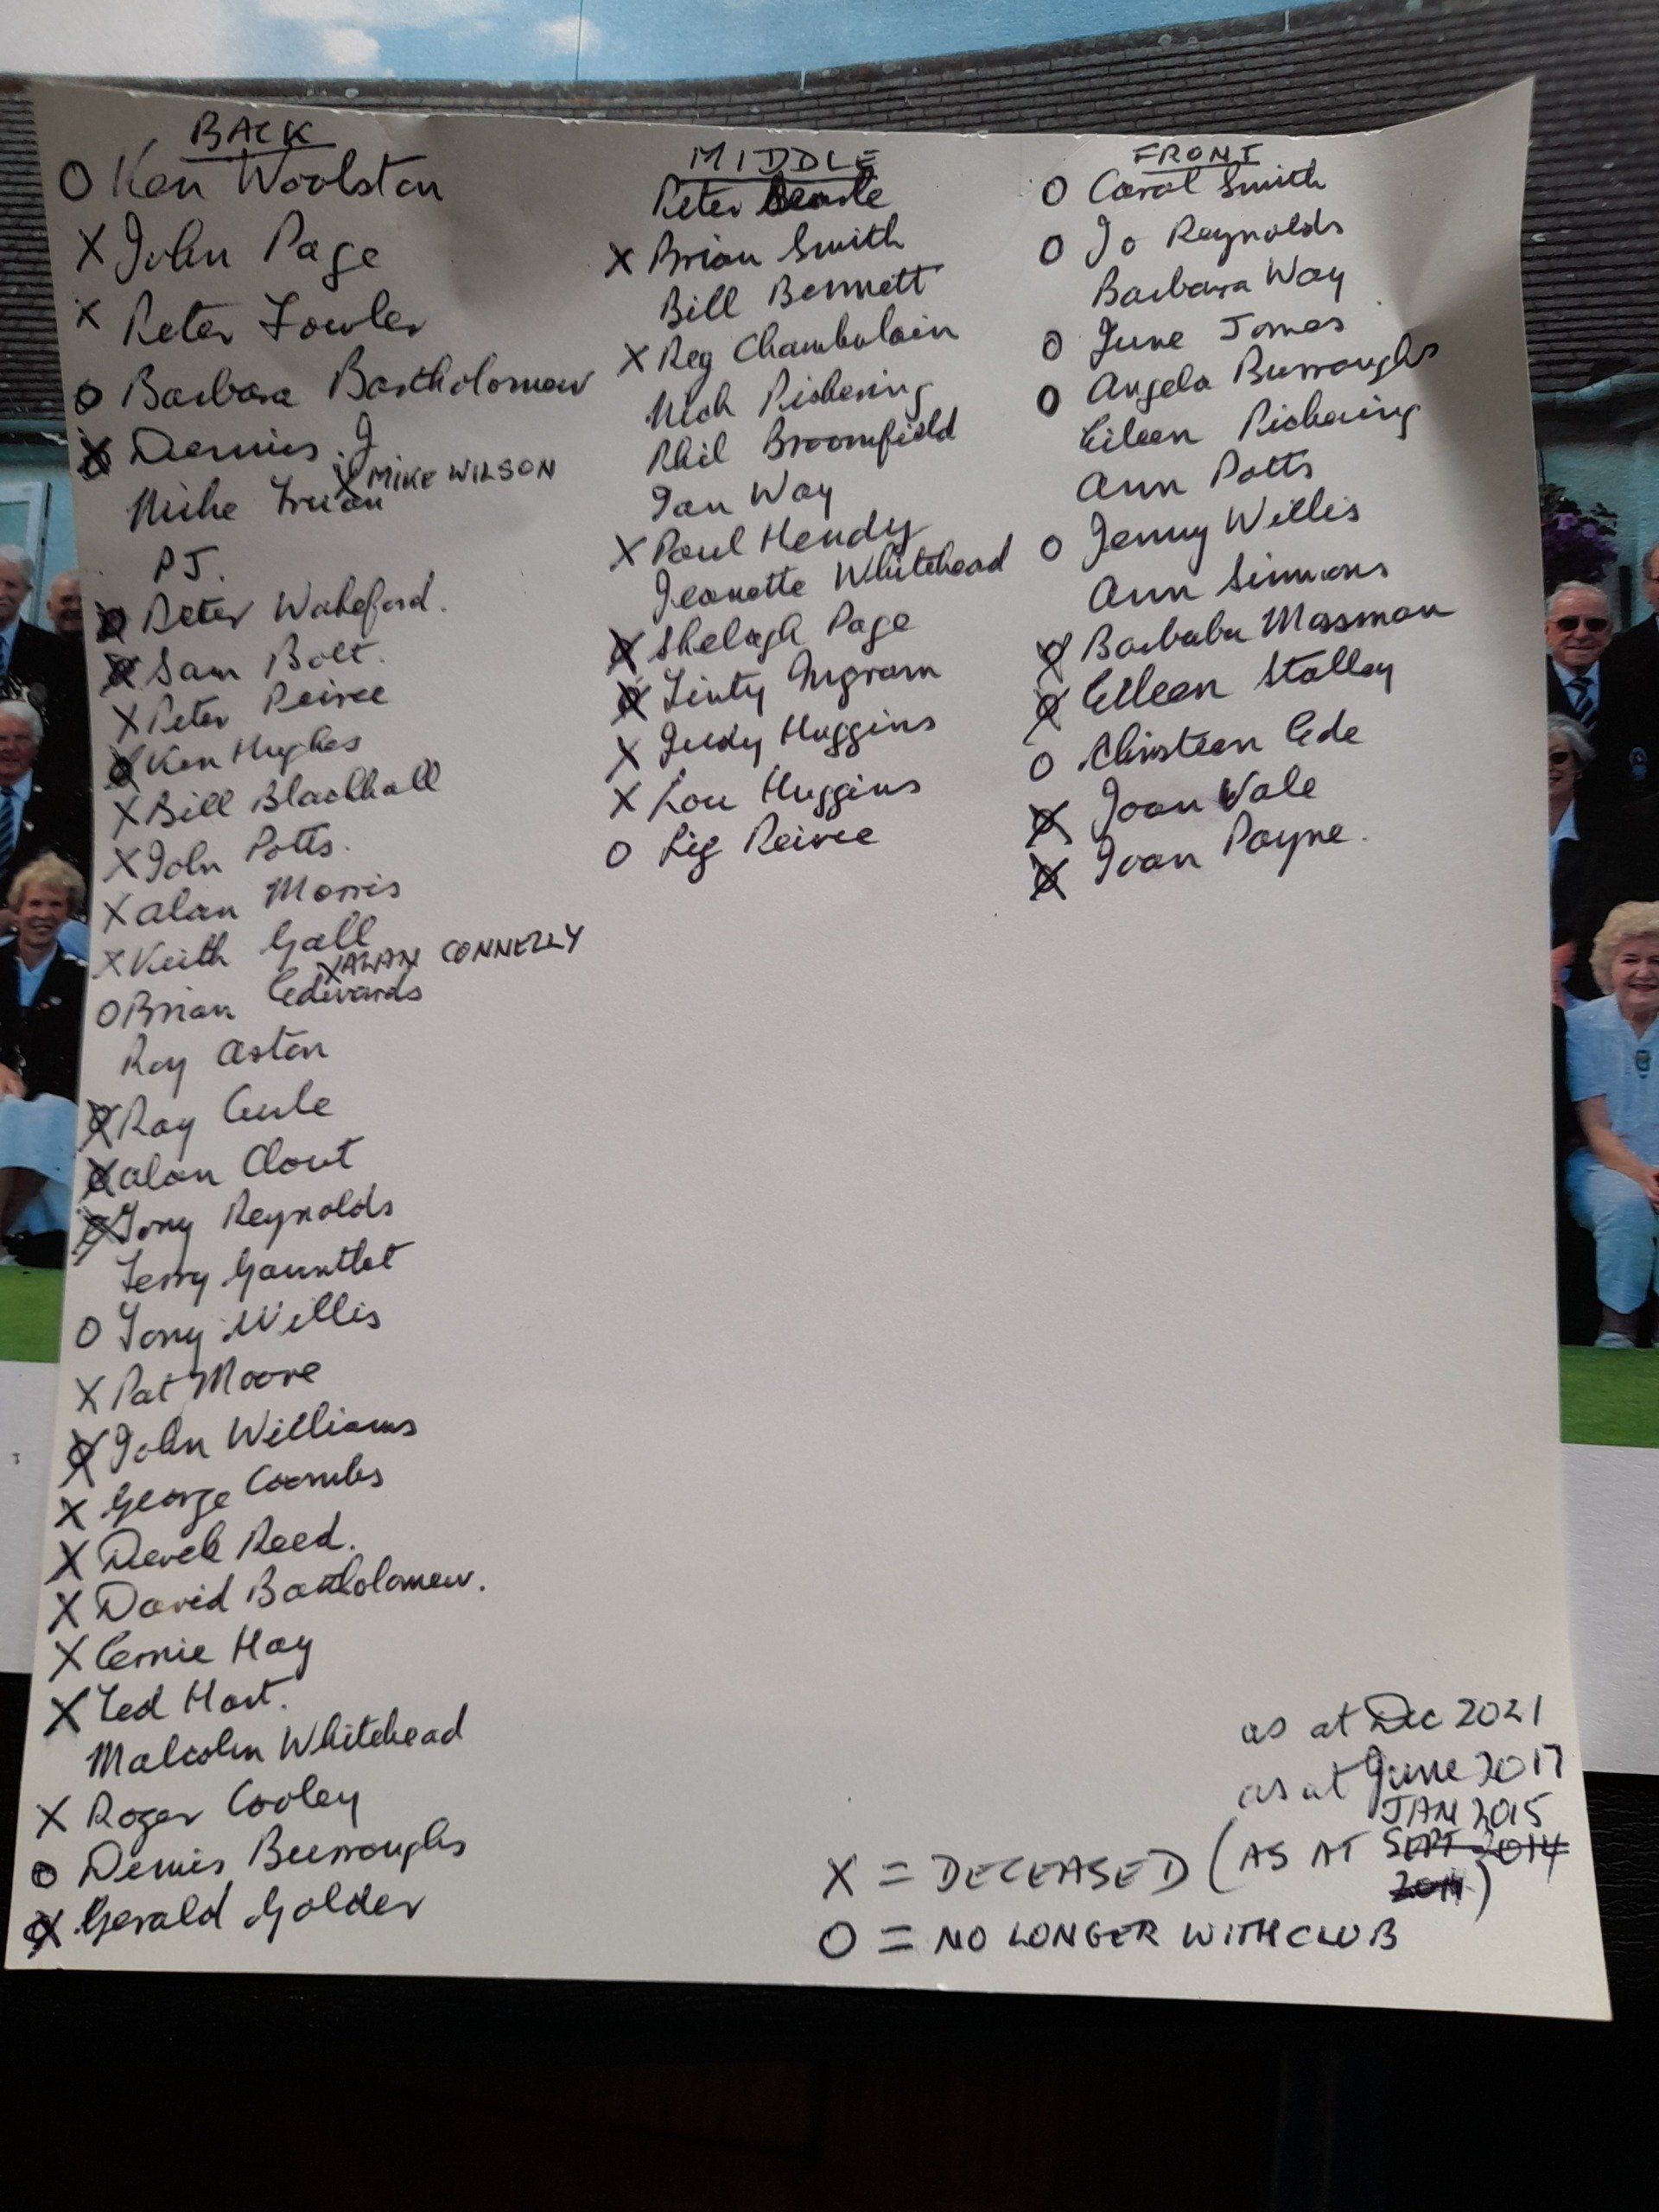 BACK
O Ken Woolston
X John Page
X Peter Fowler
O Barbara Bartholomew
X Dennis J
X MIKE WILSON
Mike
P J.
O Peter Wakeford.
X Sam Bolt.
X Peter Peirce
X Ken Hughes
X Bill Blackhall
X John Potts.
X Alan Morris
X Keith Gall
X ALAN CONNELLY
O Brian Edwards
Roy Aston
X Ray Curle
X Alan Clout
X Tony Reynolds
Terry Gauntlet
O Tony Willis
X Pat Moore
X John Williams
X George Coombs
X Derek Reed.
X David Bartholomew.
X Ernie Hay
X Ted Hart.
Malcolm Whitehead
X Roger Cooley
O Dennis Burroughs
X Gerald Golder
MIDDLE
Peter
X Brian Smith
Bill Bennett
X Reg Chamberlain
Nick Pickering
Phil Broomfield
Ian Way
X Paul Hendy
Jeanette Whitehead
X Shelagh Page
X Ingram
X Judy Huggins
X Lou Huggins
O Peirce
FRONT
O Carol Smith
O Jo Reynolds
Barbara Way
O June Jones
O Angela Burroughs
Eileen Pickering
Ann Potts
O Jenny Willis
Ann Simmons
X Mossman
X Eileen Stalley
O Christeen Ede
X Joan Vale
X Joan Payne.
as at Dec 2021
as at June 2017
JAN 2015
X = DECEASED (AS AT SEPT 2014
)
O = NO LONGER WITH CLUB